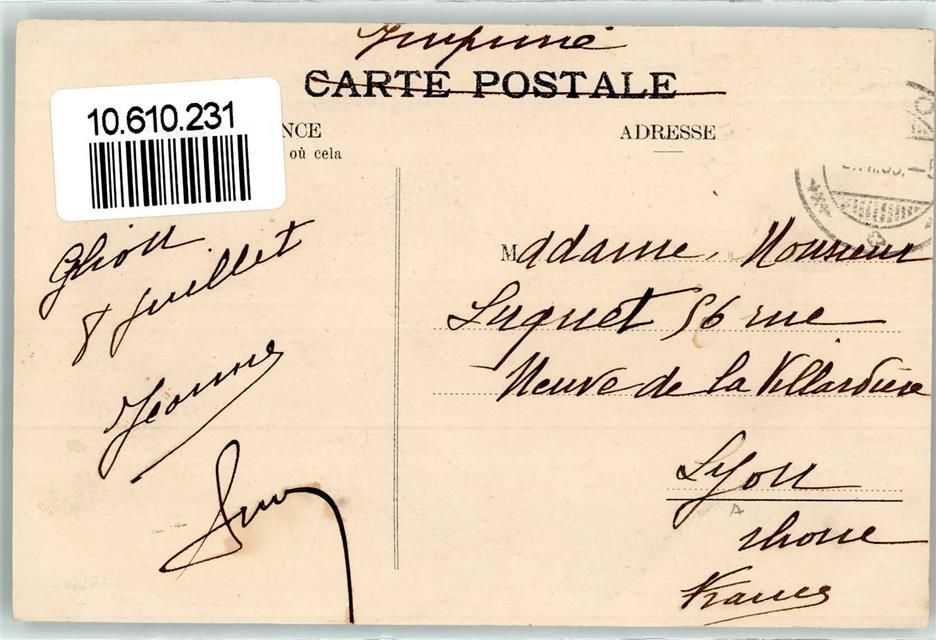 Imprimé
CARTE POSTALE
10.610.231
NCE
où cela
ADRESSE
Glion
8 Juillet
Jeanne
Madame, Monsieur
Luquet 56 rue
Neuve de la Villardière
Lyon
Rhone
France